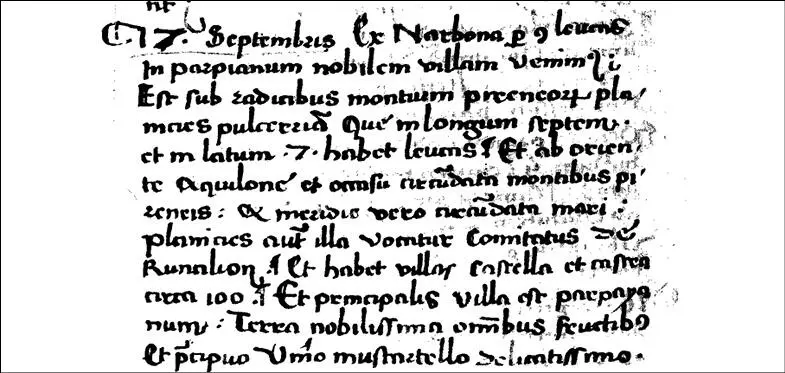 17. Septembris Ex Narbona ꝑ 9 leucas
In parpianum nobilem villam venimꝰ
Est sub radicibus montium pireneoꝝ pla/
nicies pulcerria Que in longum septem .
et in latum .7. habet leucas : Et ab orien
te Aquilone et occasu circūdata montibus pi/
reneis : A meridie vero circūdata mari :
planicies aut̄ illa vocatur Comitatus de
Runalion : Et habet villas castella et castra
circa 100 : Et principalis villa est parpara
num : Terra nobilissima om̄ibus fructibꝰ
Et p̄cipuo Vino muscatello delicatissimo .